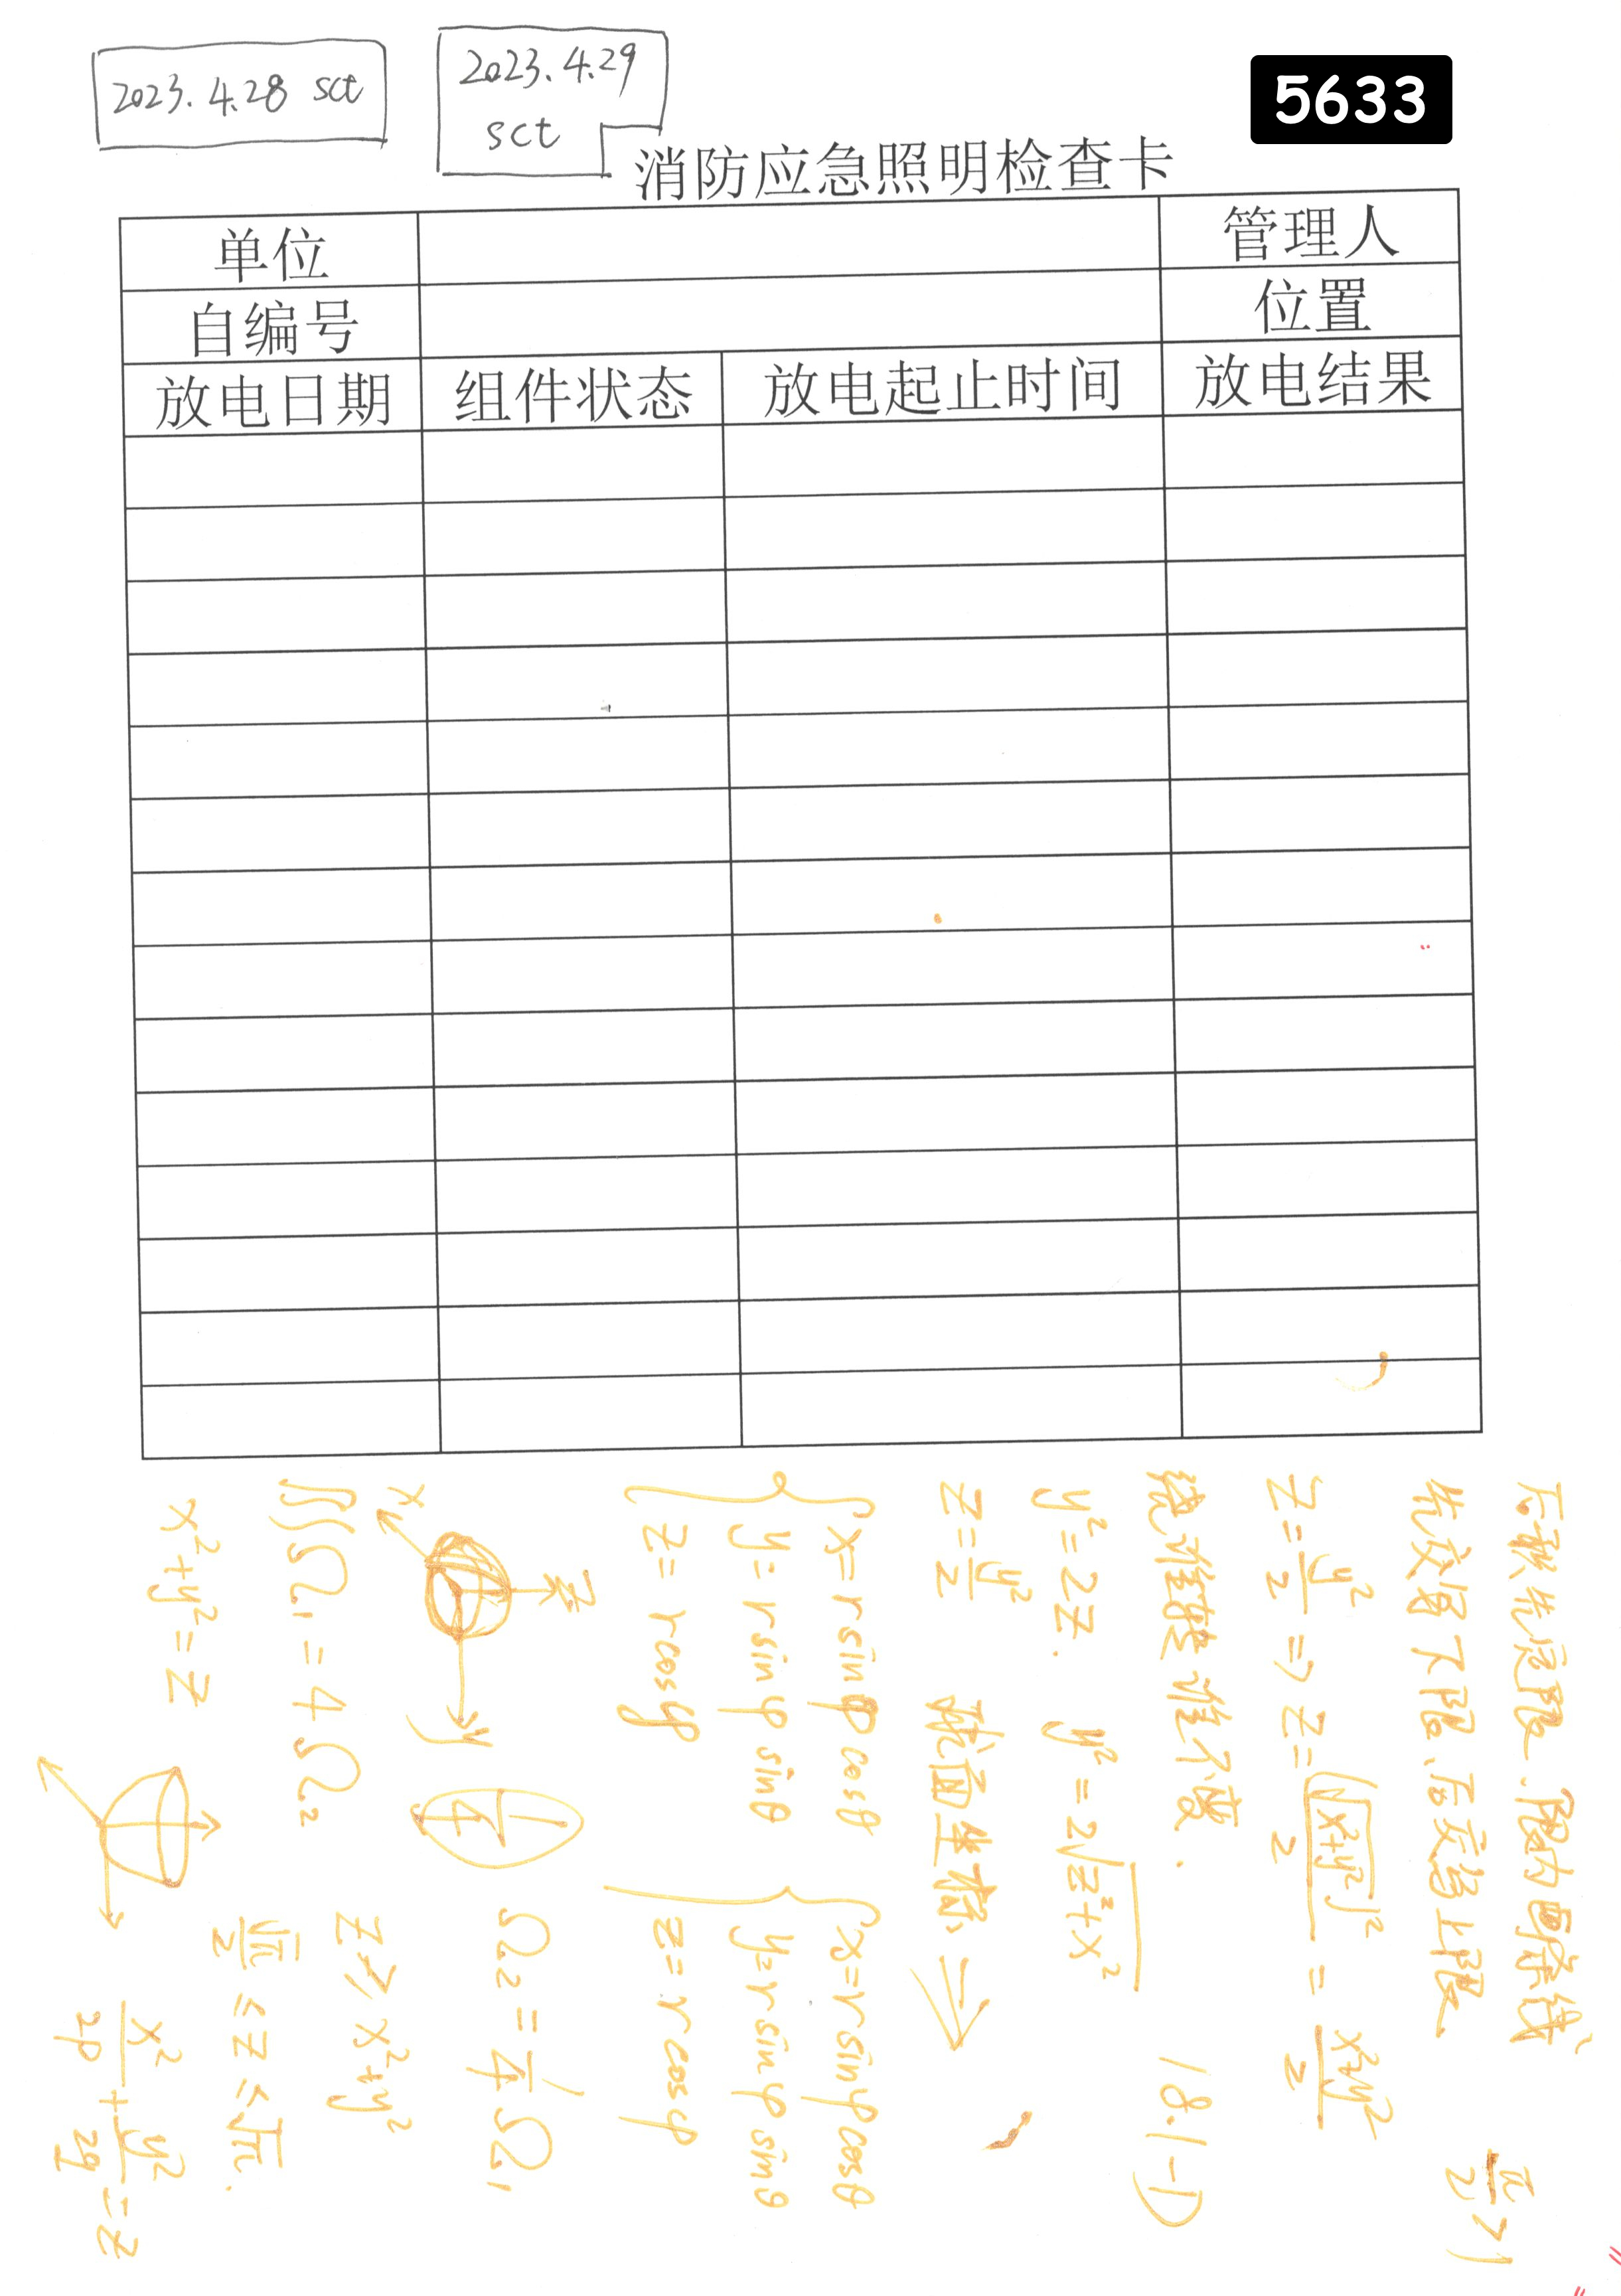 2023.4.28 sct
2023.4.29
sct
5633
消防应急照明检查卡
单位
管理人
自编号
位置
放电日期 组件状态 放电起止时间 放电结果
后积先定限、限内画条线
先交写下限、后交写上限
π/2 > 1
z = y²/2 ⇒ z = (√(x²+y²))²/2 = x²+y²/2
绕谁转谁不变.
18.1-D
y² = 2z. y² = 2√(z²+x²)
z = y²/2
球面坐标 ⇒
{ x = r sinφ cosθ
y = r sinφ sinθ
z = r cosφ
{ x = r sinφ cosθ
y = r sinφ sinθ
z = r cosφ
z
x
y
1/4
Ω₂ = 1/4 Ω₁
∭Ω₁ = 4Ω₂
z ≥ x²+y²
√π/2 ≤ z ≤ √π.
x²+y² = z
x²/2p + y²/2q = z